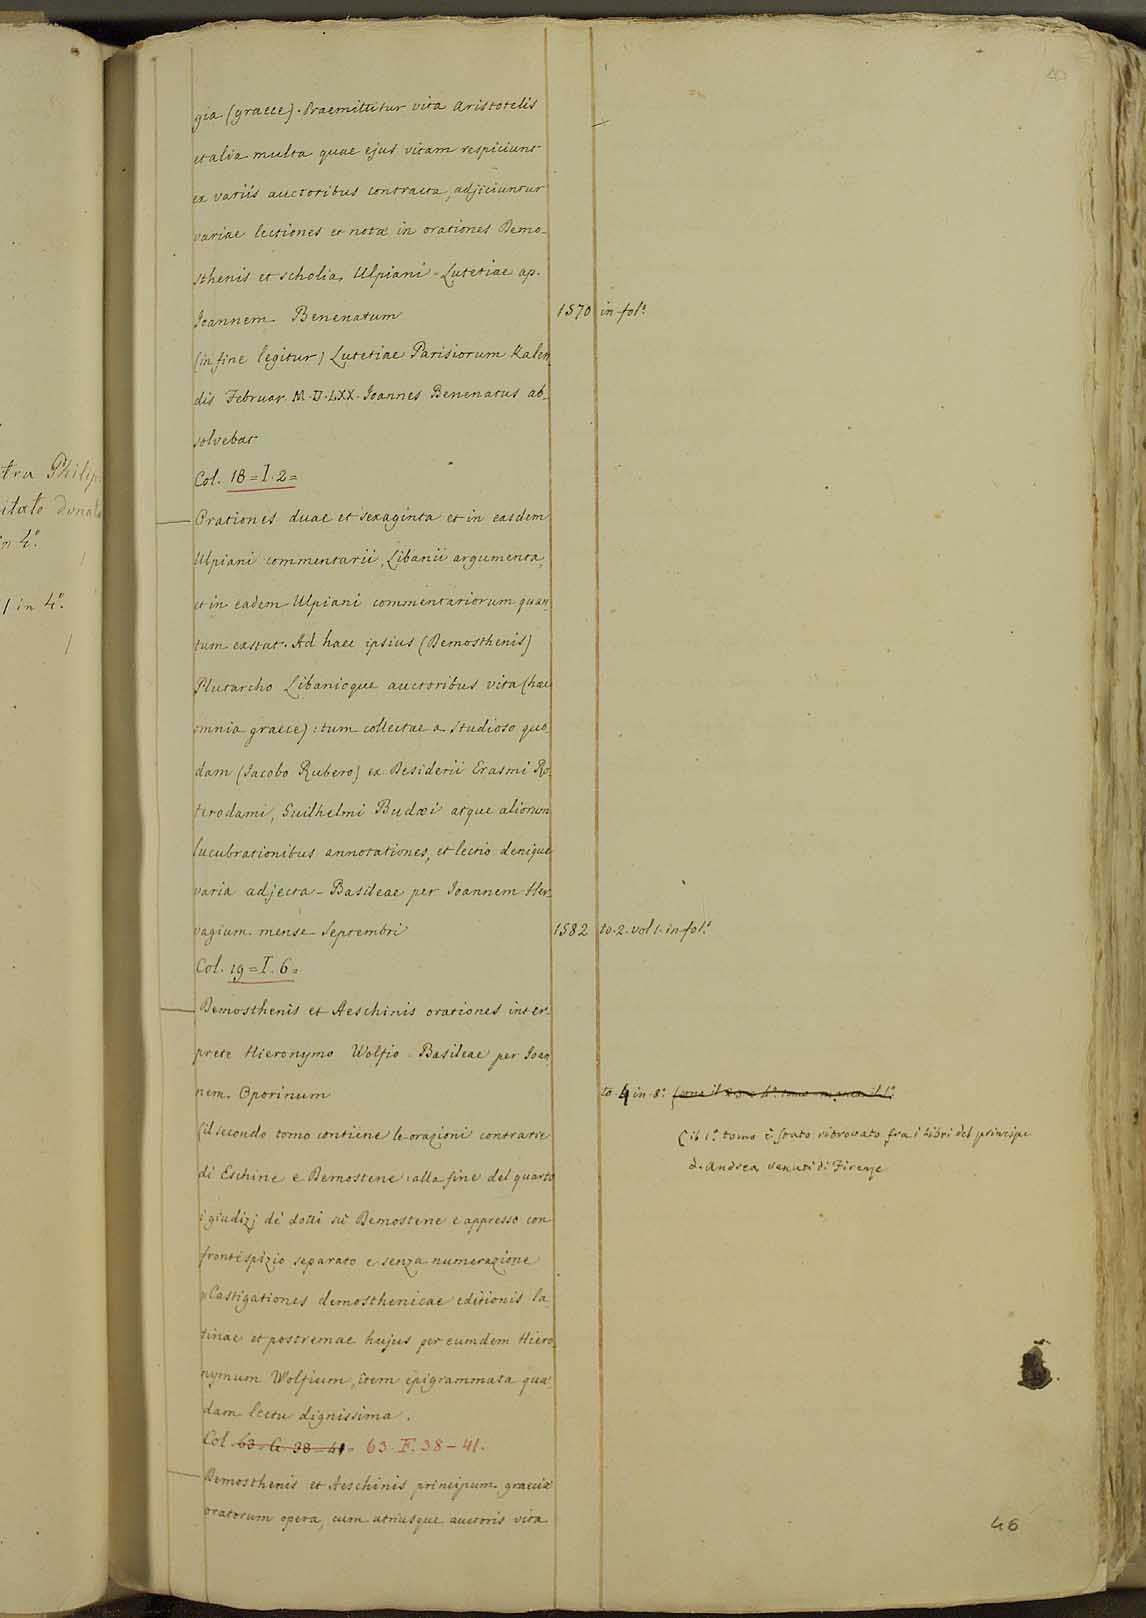 40
gia (graece). Praemittitur vita Aristotelis
et alia multa quae ejus vitam respiciunt
ex variis auctoribus contracta, adjiciuntur
variae lectiones et notæ in orationes Demo-
sthenis et scholia Ulpiani - Lutetiae ap.
Joannem Benenatum 1570 in fol.º
(in fine legitur) Lutetiae Parisiorum Kalen
dis Februar. M.D.LXX. Joannes Benenatus ab-
solvebat
Col. 18 = I. 2 =
Orationes duae et sexaginta et in easdem
Ulpiani commentarii, Libanii argumenta,
et in eadem Ulpiani commentariorum quan
tum exstat. Ad haec ipsius (Demosthenis)
Plutarcho Libanioque auctoribus vita (haec
omnia graece): tum collectae a studioso quo
dam (Jacobo Rubero) ex Desiderii Erasmi Ro-
terodami, Guilhelmi Budæi atque aliorum
lucubrationibus annotationes, et lectio denique
varia adjecta - Basileae per Joannem Her-
vagium mense Septembri 1582 to. 2. vol 1. in fol.º
Col. 19 = I. 6 =
Demosthenis et Aeschinis orationes inter-
prete Hieronymo Wolfio - Basileae per Joan
nem Oporinum to. 4 in 8.º
(il secondo tomo contiene le orazioni contrarie
(il 1.º tomo è stato ritrovato fra i libri del principe
di Eschine e Demostene: alla fine del quarto
d. Andrea venuti di Firenze
i giudizj de' dotti su Demostene e appresso con
frontispizio separato e senza numerazione
Castigationes demosthenicae editionis la-
tinae et postremae hujus per eumdem Hiero-
nymum Wolfium, item epigrammata quæ-
dam lectu dignissima.
Col. 63. G. 38 - 41. 63. F. 38 - 41.
Demosthenis et Aeschinis principum graeciæ
oratorum opera, cum utriusque auctoris vita
46
tra Philip
itato donato
in 4.º
1 in 4.º